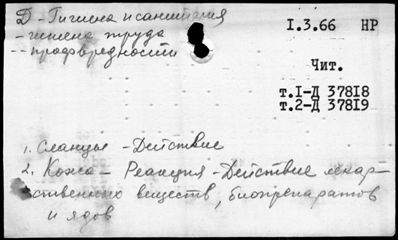 D - Гигиена и санитария
- гигиена труда
-- профвредности
I.3.66 НР
Чит.
т.I-Д 37818
т.2-Д 37819
1. Сланцы - Действие
2. Кожа - Реакция - Действие лекар-
ственных веществ, биопрепаратов
и ядов